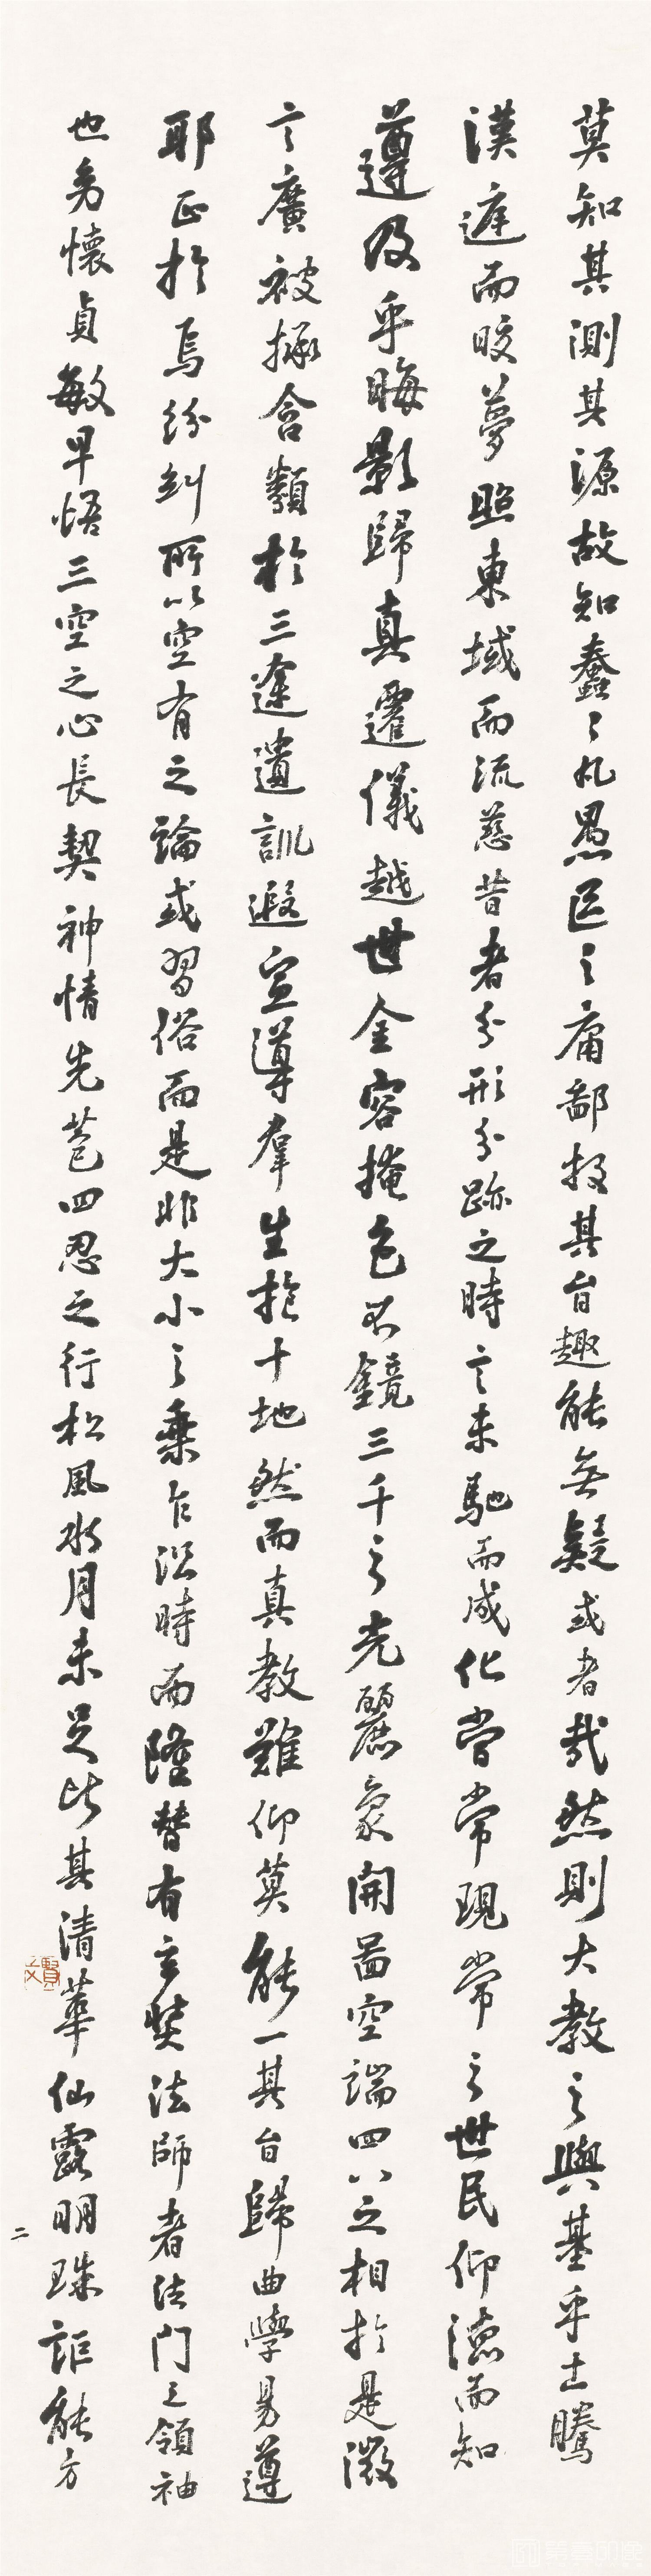 莫知其測其源故知蠢〻凡愚區之庸鄙投其旨趣能無疑或者哉然則大教之興基乎士騰
漢庭而皎夢照東域而流慈昔者分形分跡之時言未馳而成化當常現常之世民仰德而知
遵及乎晦影歸真遷儀越世金容掩色不鏡三千之光麗象開圖空端四八之相於是微
言廣被拯含類於三途遺訓遐宣導群生於十地然而真教難仰莫能一其旨歸曲學易遵
耶正於焉紛糾所以空有之論或習俗而是非大小之乘乍沿時而隆替有玄奘法師者法門之領袖
也幼懷貞敏早悟三空之心長契神情先苞四忍之行松風水月未足比其清華仙露明珠詎能方
二